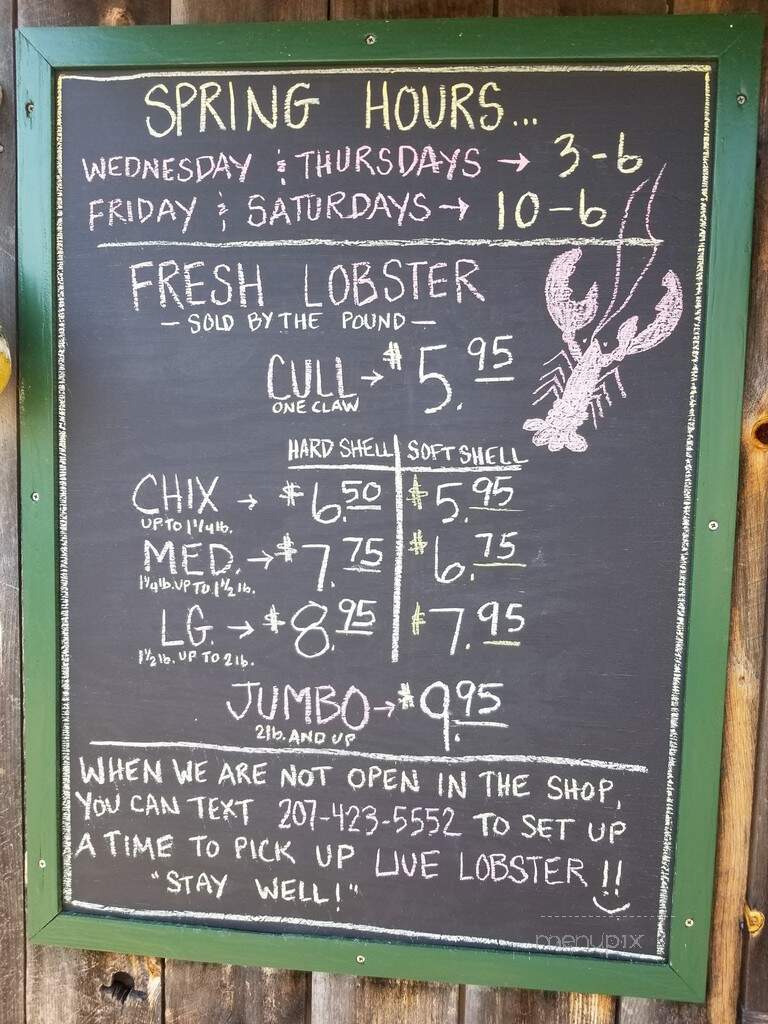 SPRING HOURS...
WEDNESDAY & THURSDAYS → 3-6
FRIDAY & SATURDAYS → 10-6
FRESH LOBSTER
- SOLD BY THE POUND -
CULL → $5.95
ONE CLAW
HARD SHELL SOFT SHELL
CHIX → $6.50 $5.95
UP TO 1 1/4 lb.
MED. → $7.75 $6.75
1 1/4 lb. UP TO 1 1/2 lb.
LG. → $8.95 $7.95
1 1/2 lb. UP TO 2 lb.
JUMBO → $9.95
2 lb. AND UP
WHEN WE ARE NOT OPEN IN THE SHOP,
YOU CAN TEXT 207-423-5552 TO SET UP
A TIME TO PICK UP LIVE LOBSTER!!
"STAY WELL!"
menupix